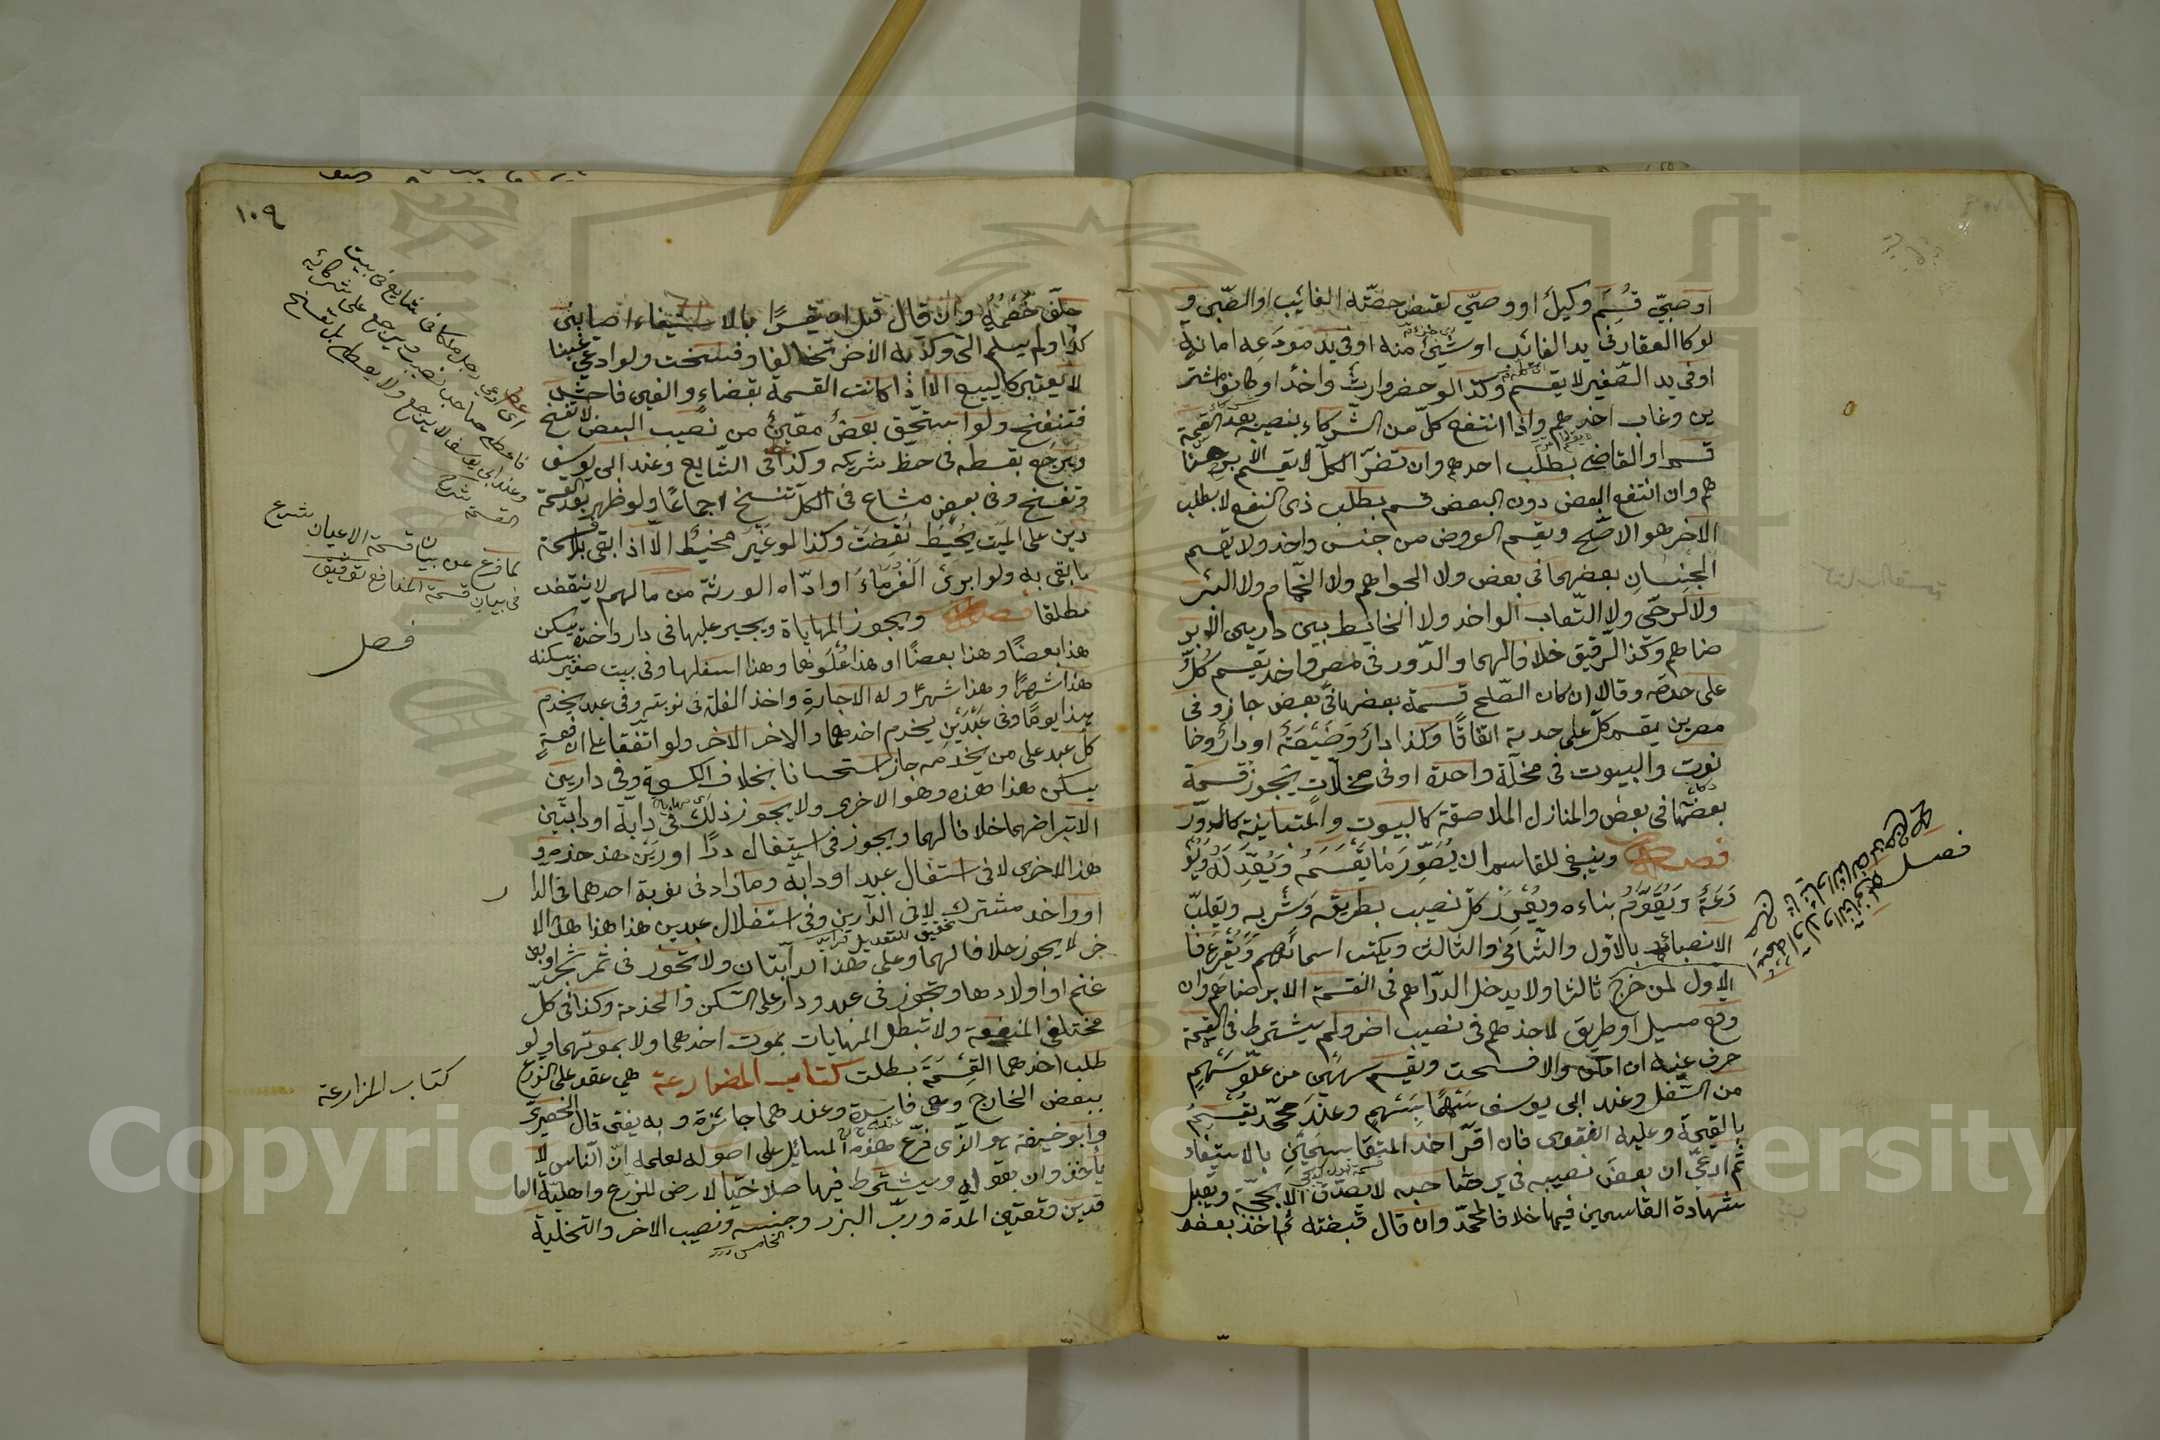 او صبيّ قُسِم وكيل او وصيّ لقبض حصّته الغائب او الصّبي و
لو كا العقار في يد الغائب او شئ منه او في يد مودَعِه امانة
او في يد الصّغير لا يقسم وكذا لو حضر وارث واحد او كانو مشتر
ين وغاب احدهم واذا انتفع كلّ من الشركاء بنصيبه بعد القسمة
قسم او القاضي بطلب احدهم وان تضرّ الكلّ لا يقسم الا برضا
هم وان انتفع البعض دون البعض قسم بطلب ذي النفع لا بطلب
الاخر هو الاصّح ويقسم العروض من جنس واحد ولا يقسم
الجنسان بعضهما في بعض ولا الجواهر ولا الحمام ولا البئر
ولا الرحى ولا الثّياب الواحد ولا الحائط بين دارين الا بر
ضاهم وكذا الرّقيق خلافا لهما والدّور في مصر واحد يقسم كُلّ
على حدة وقالا ان كان الصّلح قسمة بعضها في بعض جاز وفي
مصرين يقسم كلّ على حدة اتفاقًا وكذا دار وضَيْعَة او دار وحا
نوت والبيوت في محلّة واحدة او في محلّات يجوز قسمة
بعضها في بعض والمنازل الملاصقة كالبيوت والمتباينة كالدوّر
فصل وينبغي للقاسم ان يُصَوِّرَ ما يَقْسَمُه ويُعَدِّله ويُذ
رعه ويُقَوِّمُ بناءه ويُفرز كلّ نصيب بطريقه وشربه ويلقبّ
الانصباء بالاول والثّاني والثالث ويكتب اسماءهم ويُقْرِع فا
الاول لمن خرج ثالثا ولا يدخل الدّراهم في القسمة الا برضاهم وان
وقع مسيل او طريق لاحدهم في نصيب اخر ولم يشترط في القسمة
صرف عنه ان امكن والا فسخت ويقسم سهمين من علوّ بسَهْمٍ
من السّفل وعند ابي يوسف سَهْمًا بِسَهْمٍ وعند محمّد يُقسم
بالقيمة وعليه الفتوى فان اقرّ احد المتقاسمَيْنِ بالاستيفاء
ثم ادعيّ ان بعض نصيبه في يد صاحبه لا يصدّق الا بحجّة ويقبل
شهادة القاسمين فيها خلافا لمحمدّ وان قال قبضته ثم اخذ بعضه
فصل
١٠٩
حلف خَصْمُهُ وان قال قبل ان يقسرًا بالاستيفاء اصابني
كذا ولم يسلم اليّ وكذّبه الاخر تحالفا وفسخت ولو ادعي غبنا
لا يعتبر كالبيع الا اذا كانت القسمة بقضاء والغبن فاحش
فتنفسخ ولو استحّق بعض معّين من نصيب البعض لا تفسخ
ويرجع بقسطه في حظ شريكه وكذا في الشّايع وعند ابي يوسف
تفسخ وفي بعض مشاع في الكلّ تنسخ اجماعًا ولو ظهر بعد القسمة
دين على الميّت يُحيْط نُقِضَت وكذا لو غير محيط الّا اذا بقي بلا قسمة
ما يفي به ولو ابرئ الغُرَمَاء او ادّاه الورثة من مالهم لا ينقض
مطلقا فصل ويجوز المهاياة ويجبر عليها في دار واحدة يسكن
هذا بعضًا وهذا بعضًا او هذا عُلُوها وهذا اسفلها وفي بيت صغير يسكنه
هذا شهرًا وهذا شهرًا وله الاجارة واخذ الغلة في نوبته وفي عبد يخدم
هذا يومًا وفي عَبْدَيْنِ يخدم احدهما والاخر الاخر ولو اتّفقا على ان نفقة
كل عبد على من يخدمه جاز استحسانا بخلاف الكسوة وفي دارين
يسكن هذا هذه وهو الاخرى ولا يجوز ذلك في دابّة او دابتّين
الا بتراضيهما خلافا لهما ويجوز في استغلال دارًا او دارين هذا هذه و
هذا الاخرى لا في استغلال عبد او دابّة وما زاد في نوبة احدهما في الدّا
ار واحد مشترك لا في الدّارين وفي استغلال عبدين هذا هذا هذا الا
خر لا يجوز خلافا لهما وعلى هذا الدابّتان ولا تجوز في ثمر شجر او لبن
غنم او اولادها وتجوز في عبد ودار على السّكن والخدمة وكذا في كلّ
مختلفي المنفعة ولا تبطل المهايات بموت احدهما ولا بموتهما ولو
طلب احدهما القِسْمَة بطلت كتاب المضارعة هي عقد على الزرع
ببعض الخارج وهي فاسدة وعندهما جائزة وبه يفتى قال الحصيريّ
وابو حنيفة هو الذّي فرّع هذه المسائل على اصوله لعلمه انّ الناس لا
يأخذون بقوله ويشترط فيها صلاحيّة الارض للزرع واهليّة العا
قدين وتعيّين المدّة وربّ البزر وجنسه ونصيب الاخر والتخلية
اي ادعى رجل ملكا في شايع في بيت
لما فرغ عن بيان قسمة الاعيان شرع
في بيان قسمة المنافع توفيق
فصل
كتاب المزارعة
Copyright © King Saud University